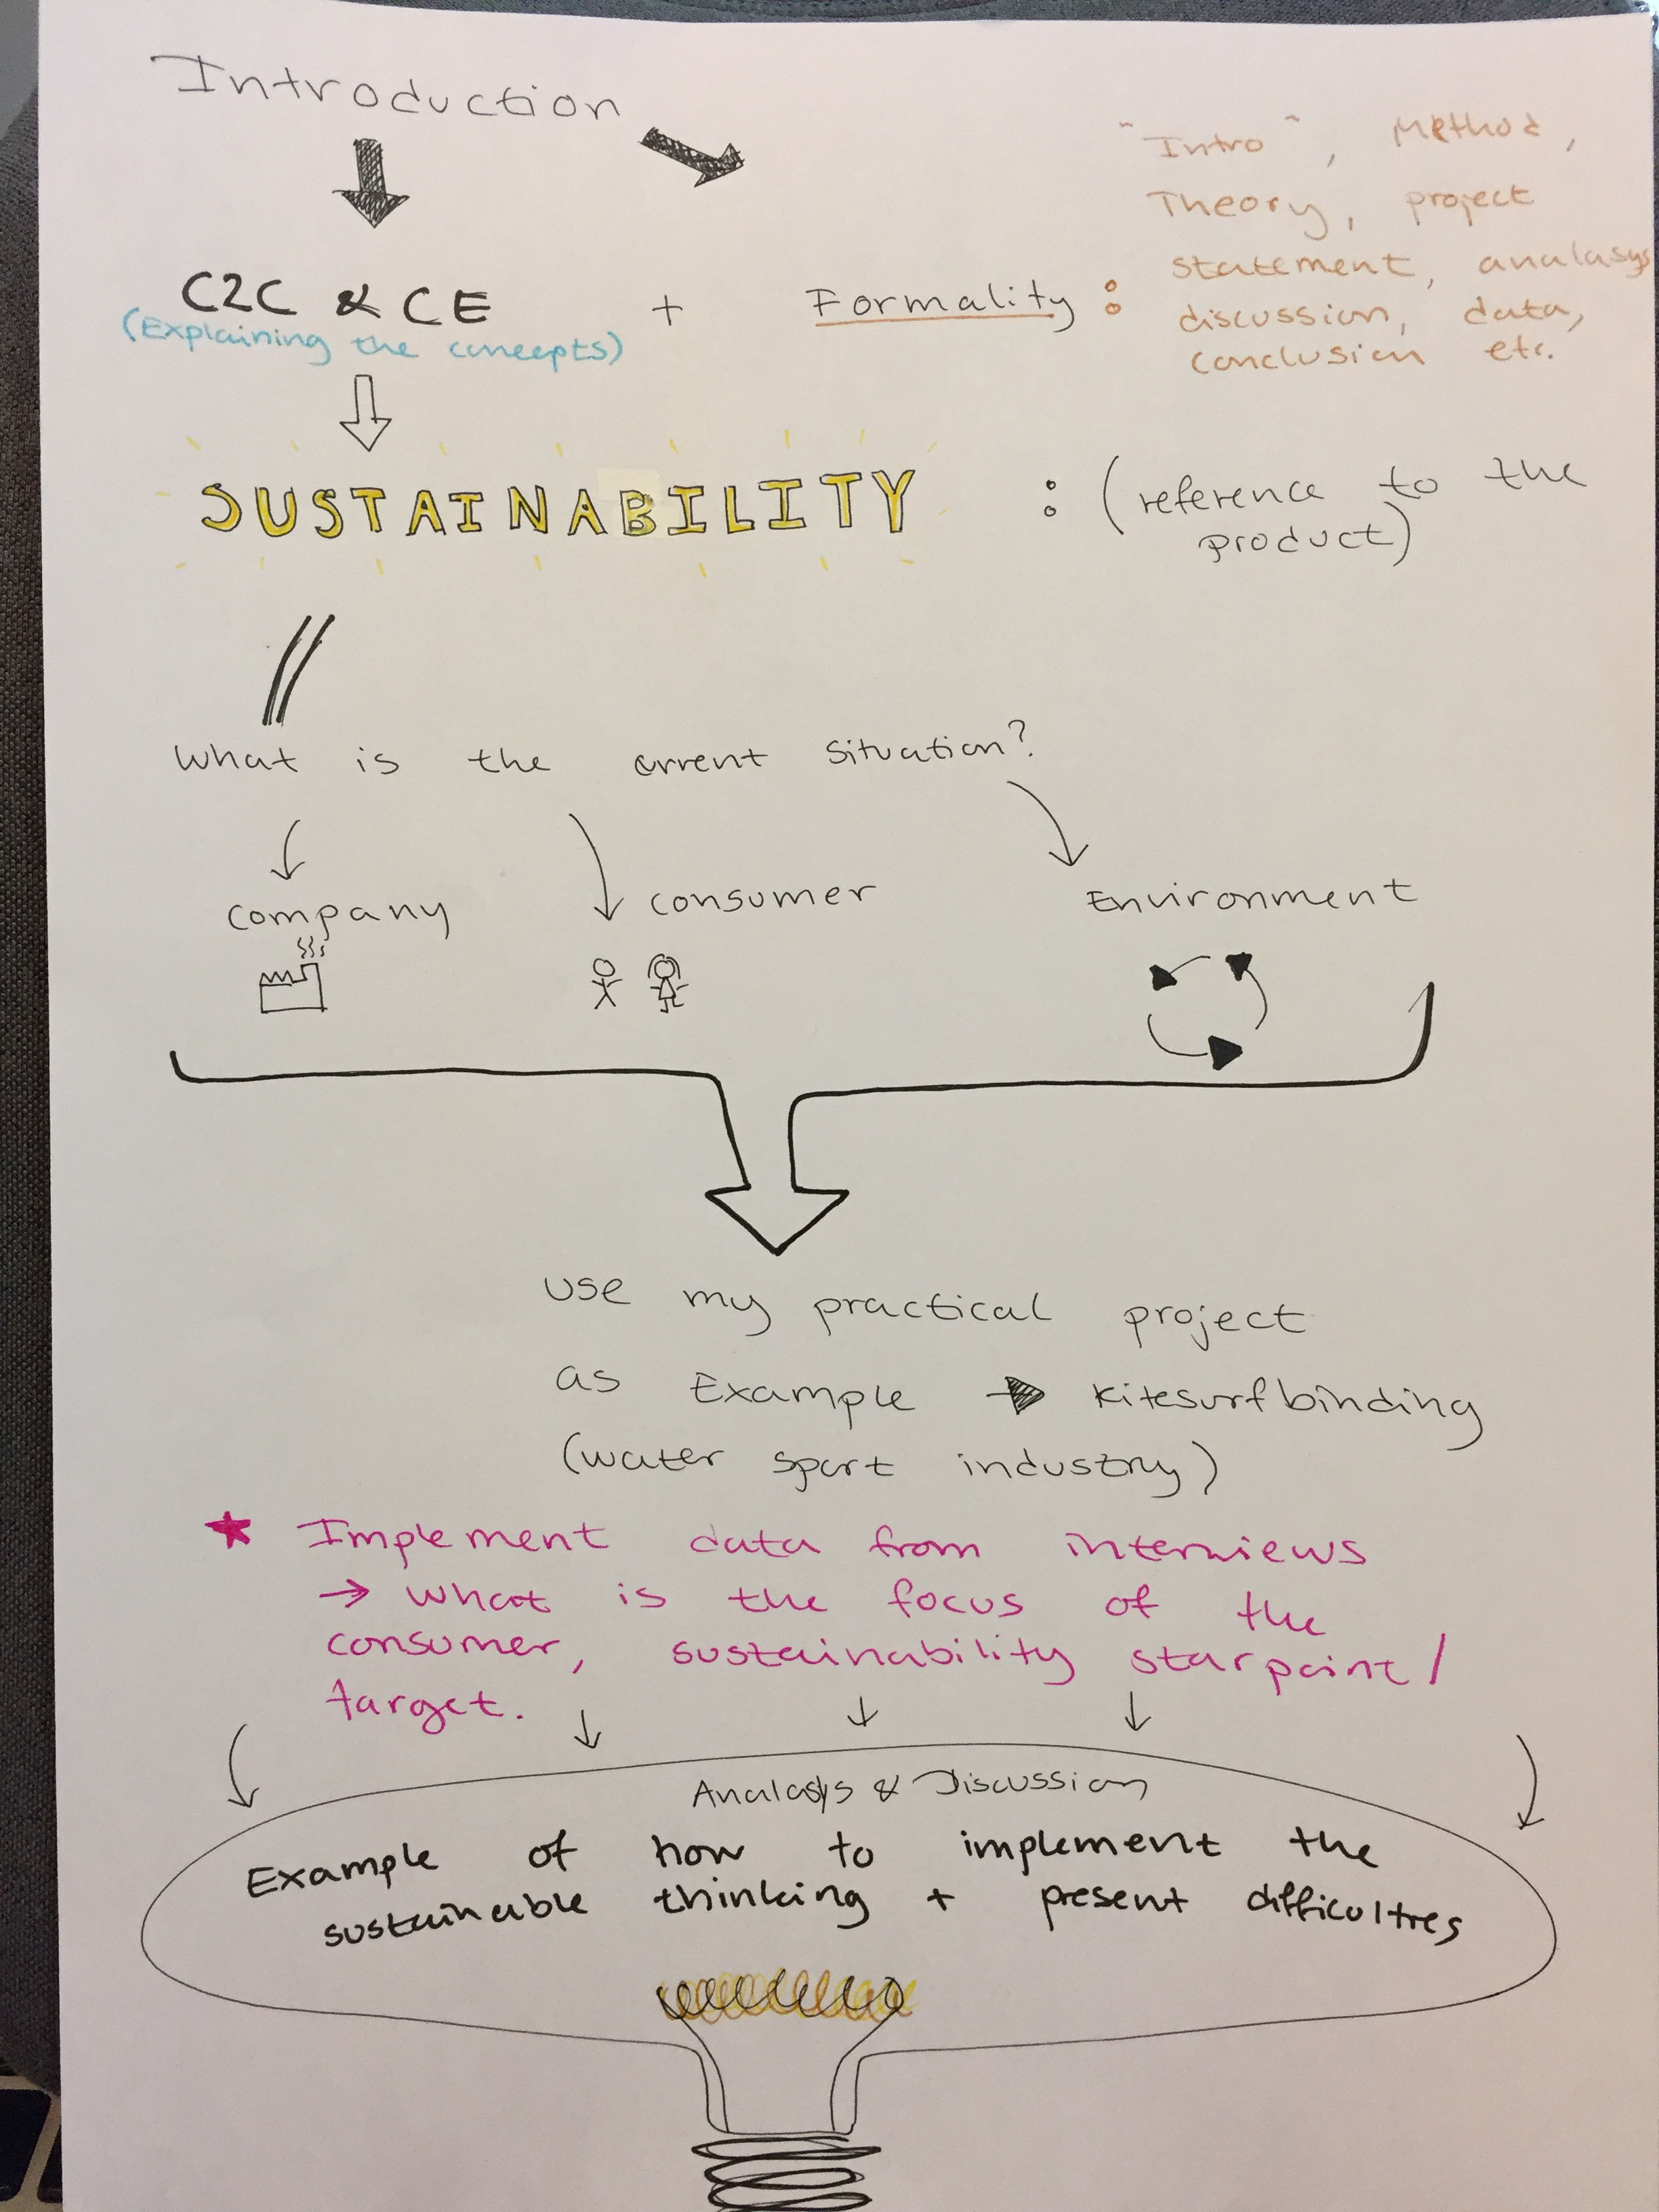 Introduction
"Intro", Method,
Theory, project
statement, analasys
discussion, data,
conclusion etc.
C2C & CE + Formality:
(Explaining the concepts)
SUSTAINABILITY : (reference to the
product)
What is the current situation?
company consumer Environment
use my practical project
as Example → kitesurfbinding
(water sport industry)
★ Implement data from interviews
→ what is the focus of the
consumer, sustainability starpoint/
target.
Analasys & Discussion
Example of how to implement the
sustainable thinking + present difficultres